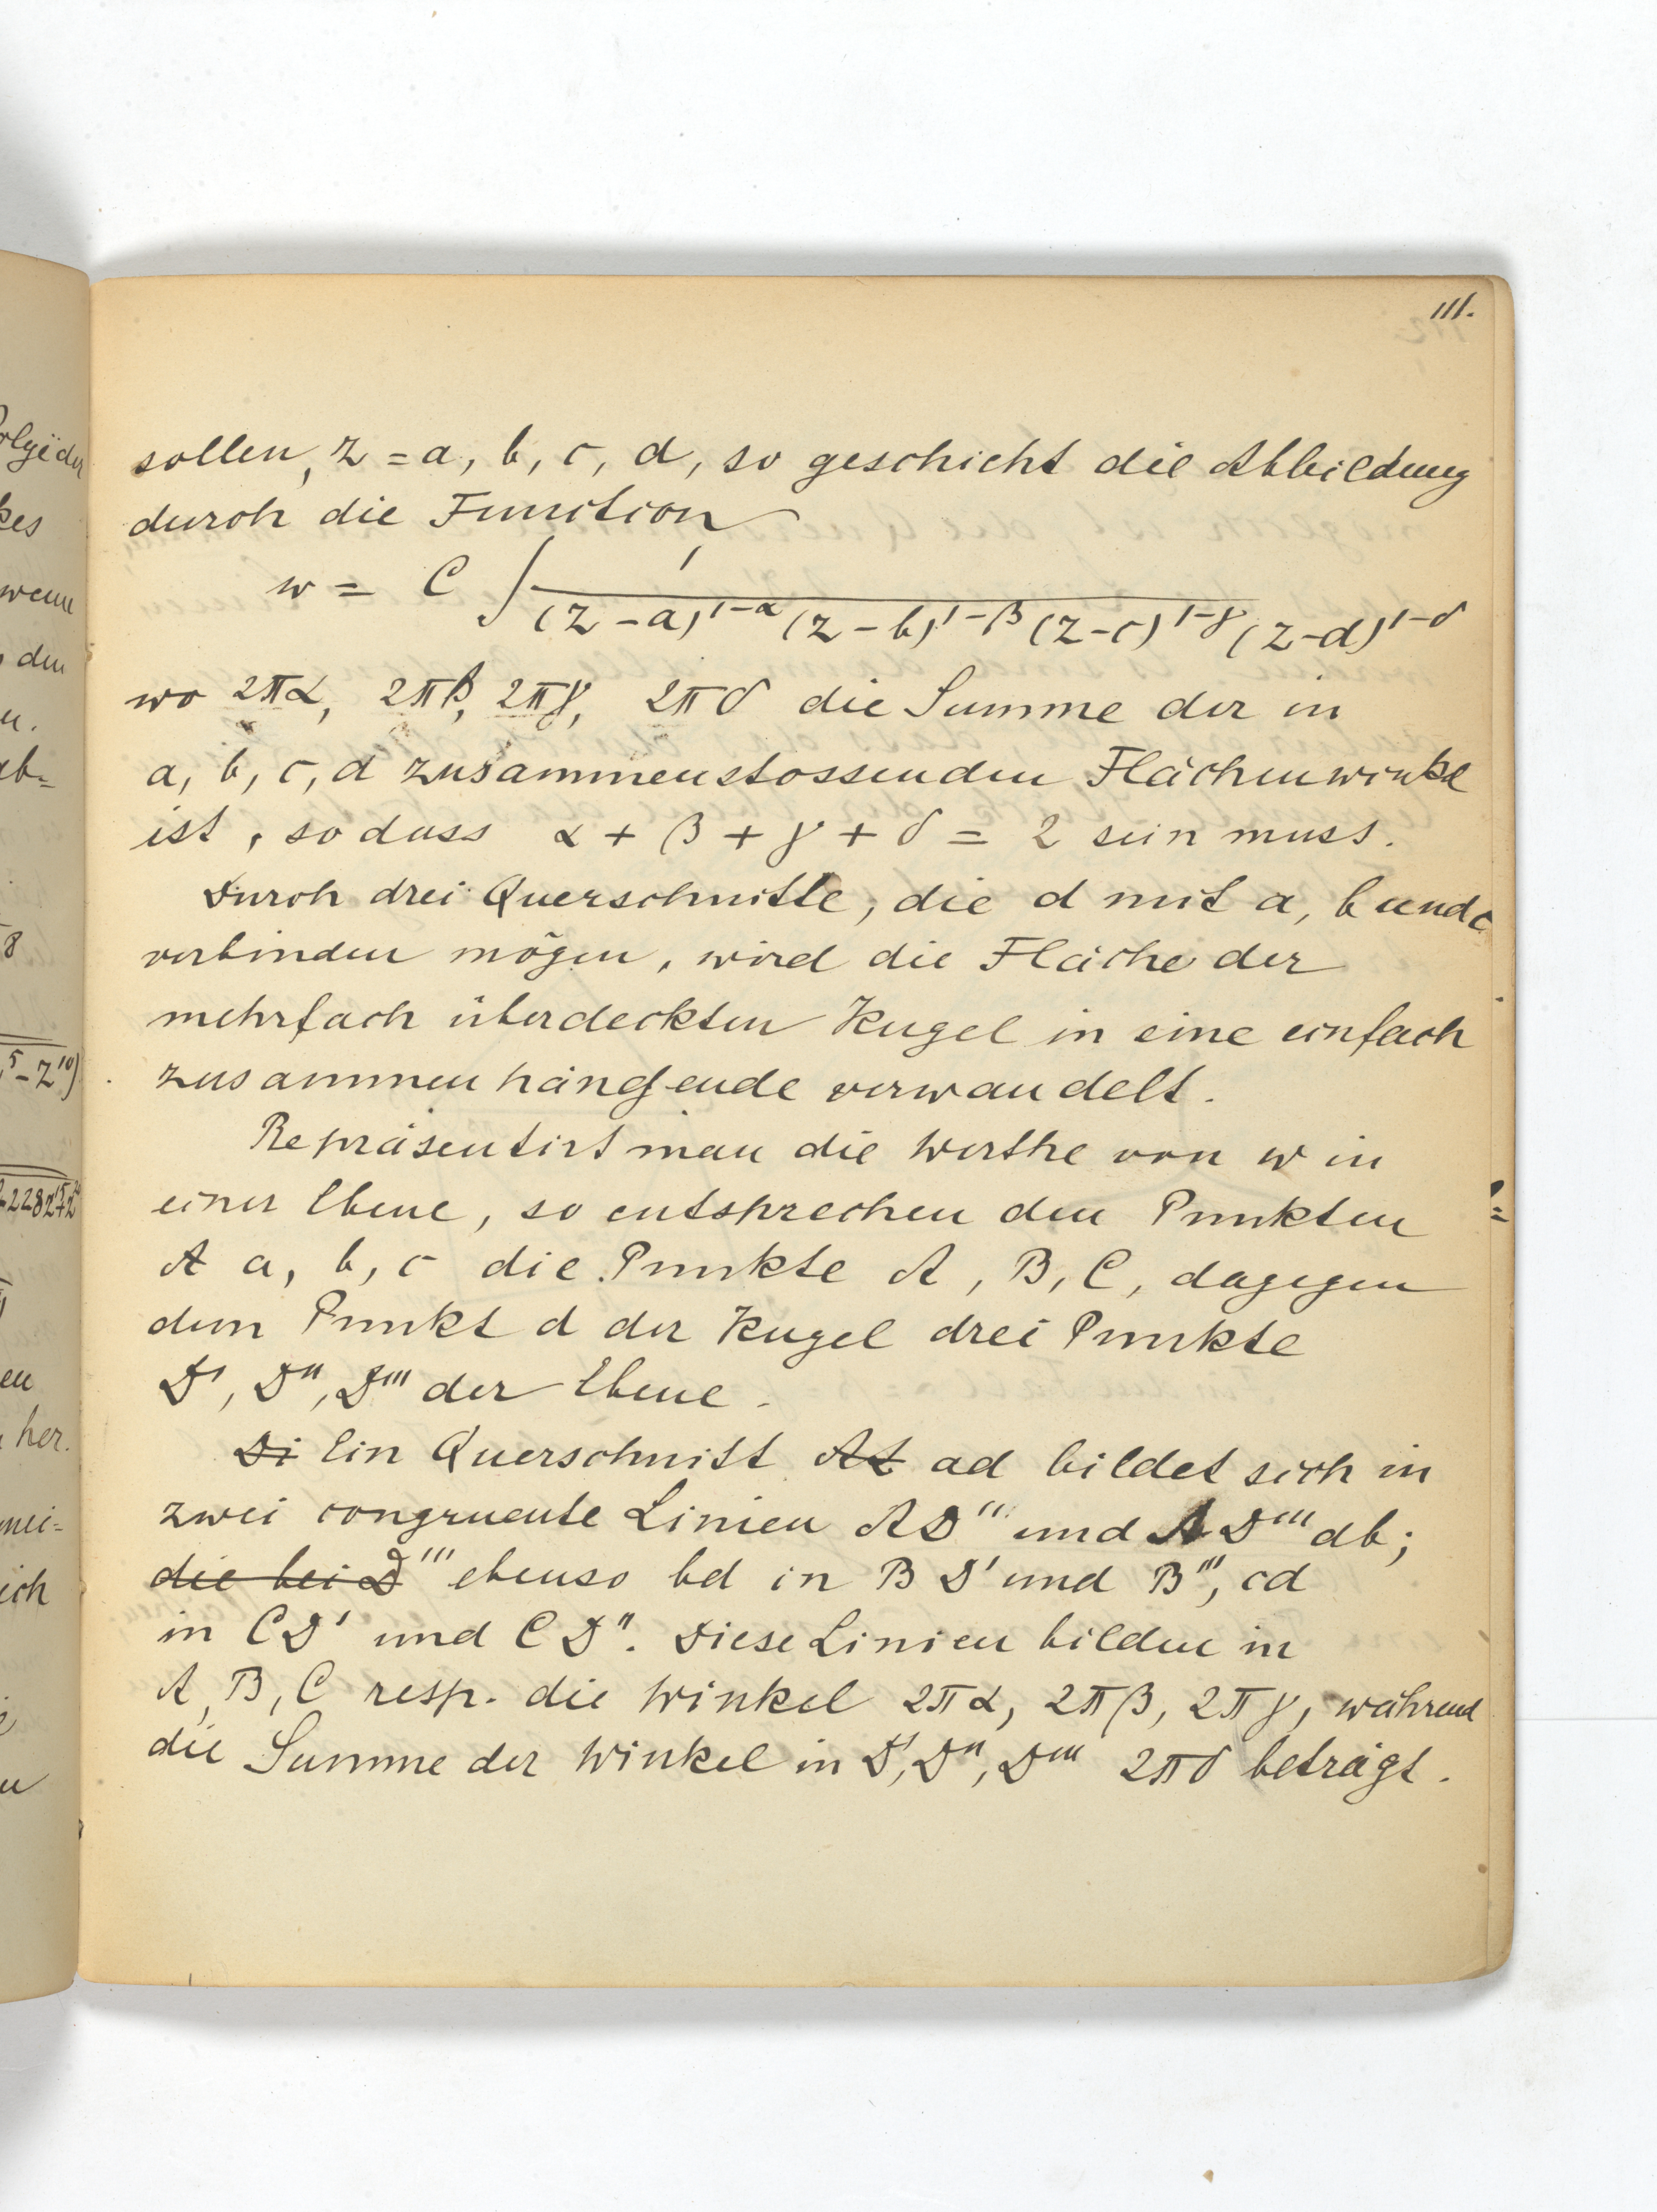 111.
sollen, z = a, b, c, d, so geschieht die Abbildung
durch die Function
w = C ∫ 1 / (z-a)^{1-α} (z-b)^{1-β} (z-c)^{1-γ} (z-d)^{1-δ}
wo 2πα, 2πβ, 2πγ, 2πδ die Summe der in
a, b, c, d zusammenstossenden Flächenwinkel
ist, so dass α + β + γ + δ = 2 sein muss.
Durch drei Querschnitte, die d mit a, b und c
verbinden mögen, wird die Fläche der
mehrfach überdeckten Kugel in eine einfach
zusammenhängende verwandelt.
Repräsentirt man die Werthe von w in
einer Ebene, so entsprechen den Punkten
A a, b, c die Punkte A, B, C, dagegen
dem Punkt d der Kugel drei Punkte
D', D'', D''' der Ebene.
Di Ein Querschnitt At ad bildet sich in
zwei congruente Linien AD'' und AD''' ab;
die bei D''' ebenso bd in B D' und B''', cd
in CD' und CD''. Diese Linien bilden in
A, B, C resp. die Winkel 2πα, 2πβ, 2πγ, während
die Summe der Winkel in D', D'', D''' 2πδ beträgt.